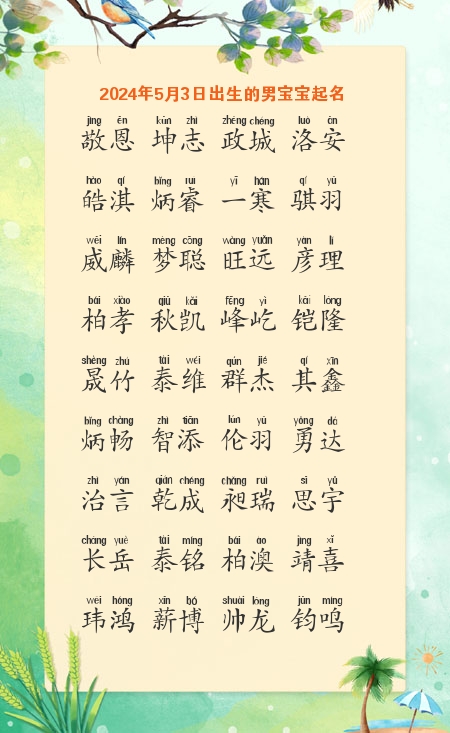 2024年5月3日出生的男宝宝起名
jìng ēn kūn zhì zhèng chéng luò ān
敬恩 坤志 政城 洛安
hào qí bǐng ruì yī hán qí yǔ
皓淇 炳睿 一寒 骐羽
wēi lín mèng cōng wàng yuǎn yàn lǐ
威麟 梦聪 旺远 彦理
bǎi xiào qiū kǎi fēng yì kǎi lóng
柏孝 秋凯 峰屹 铠隆
shèng zhú tài wéi qún jié qí xīn
晟竹 泰维 群杰 其鑫
bǐng chàng zhì tiān lún yǔ yǒng dá
炳畅 智添 伦羽 勇达
zhì yán qián chéng chǎng ruì sī yǔ
治言 乾成 昶瑞 思宇
cháng yuè tài míng bǎi ào jìng xǐ
长岳 泰铭 柏澳 靖喜
wěi hóng xīn bó shuài lóng jūn míng
玮鸿 薪博 帅龙 钧鸣